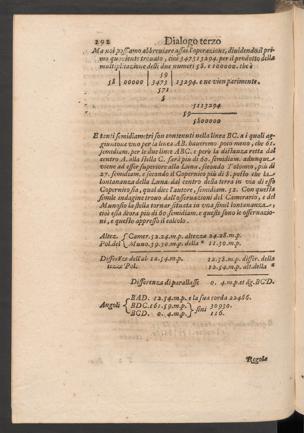 292 Dialogo terzo
Ma noi possiamo abbreuiare assai l'operazione, diuidendo il pri-
mo quoziente trouato, cioè 347313294. per il prodotto della
multiplicazione delli due numeri 58. e 100000. che è
59
58 00000 3473 13294. e ne vien parimente.
571
5
5113294
59
5800000
E tanti semidiametri son contenuti nella linea BC. a i quali ag-
giuntone vno per la linea AB. haueremo poco meno, che 61.
semidiam. per le due linee ABC. e però la distanza retta dal
centro A. alla stella C. sarà più di 60. semidiam. adunque
viene ad esser superiore alla Luna, secondo Tolomeo, più di
27. semidiam. e secondo il Copernico più di 8. posto che la
lontananza della Luna dal centro della terra in via di esso
Copernico sia, qual dice l'autore, semidiam. 52. Con questa
simile indagine trouo dall'osseruazioni del Camerario, e del
Munosio la stella tornar situata in vna simil lontananza,
cioè essa ancora più di 60 semidiam. e queste sono le osseruazio-
ni, e questo appresso il calcolo.
Altez. Camer. 52.24.m.p. altezza 24.28.m.p.
Pol. del Muno. 39.30.m.p. della * 11.30.m.p.
Differ. dell'al- 12.54.m.p. 12.58.m.p. differ. della
12.54.m.p. alt. della *
Differenza di parallasse 0. 4.m.p. et âg. BCD.
Angoli BAD. 12.54.m.p. e la sua corda 22466.
BDC. 161.59.m.p. sini 30930.
BCD. 0. 4.m.p. 116.
Regola